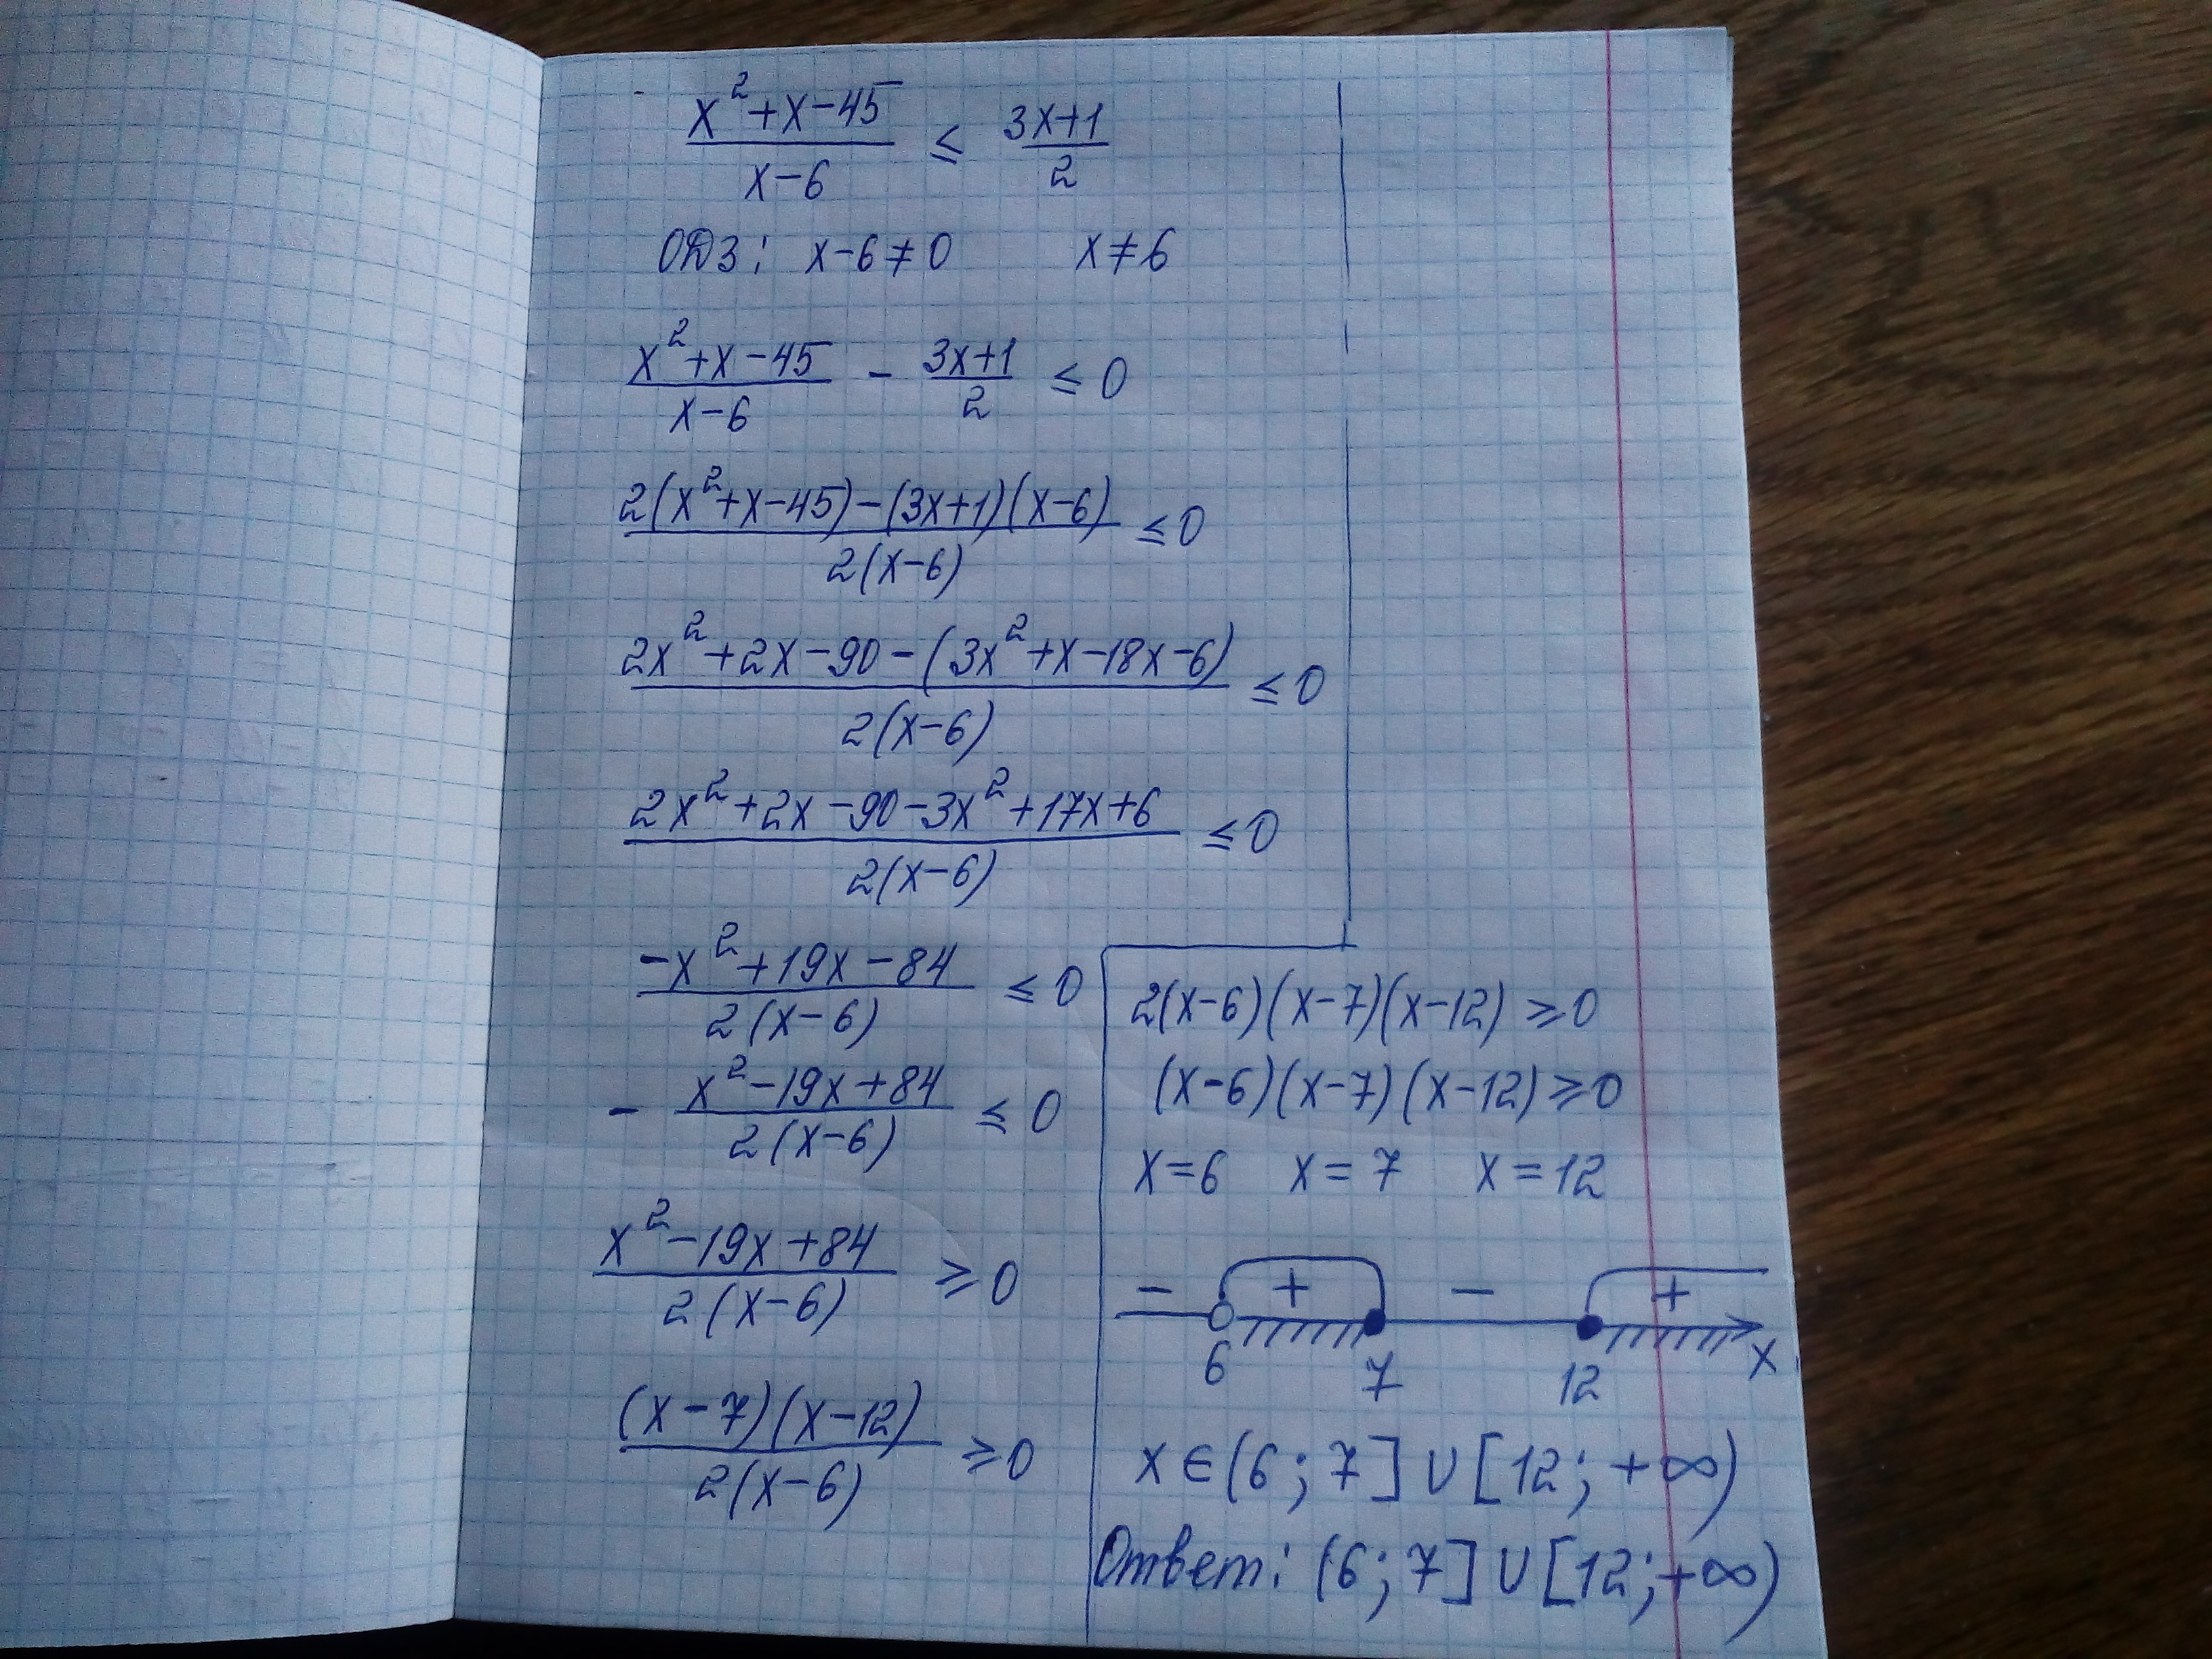 (x²+x-45)/(x-6) ≤ (3x+1)/2
ОДЗ: x-6≠0 x≠6
(x²+x-45)/(x-6) - (3x+1)/2 ≤ 0
(2(x²+x-45)-(3x+1)(x-6))/(2(x-6)) ≤ 0
(2x²+2x-90-(3x²+x-18x-6))/(2(x-6)) ≤ 0
(2x²+2x-90-3x²+17x+6)/(2(x-6)) ≤ 0
(-x²+19x-84)/(2(x-6)) ≤ 0
- (x²-19x+84)/(2(x-6)) ≤ 0
(x²-19x+84)/(2(x-6)) ≥ 0
((x-7)(x-12))/(2(x-6)) ≥ 0
2(x-6)(x-7)(x-12) ≥ 0
(x-6)(x-7)(x-12) ≥ 0
x=6 x=7 x=12
- + - +
6 7 12 x
x∈(6;7]∪[12;+∞)
Ответ: (6;7]∪[12;+∞)